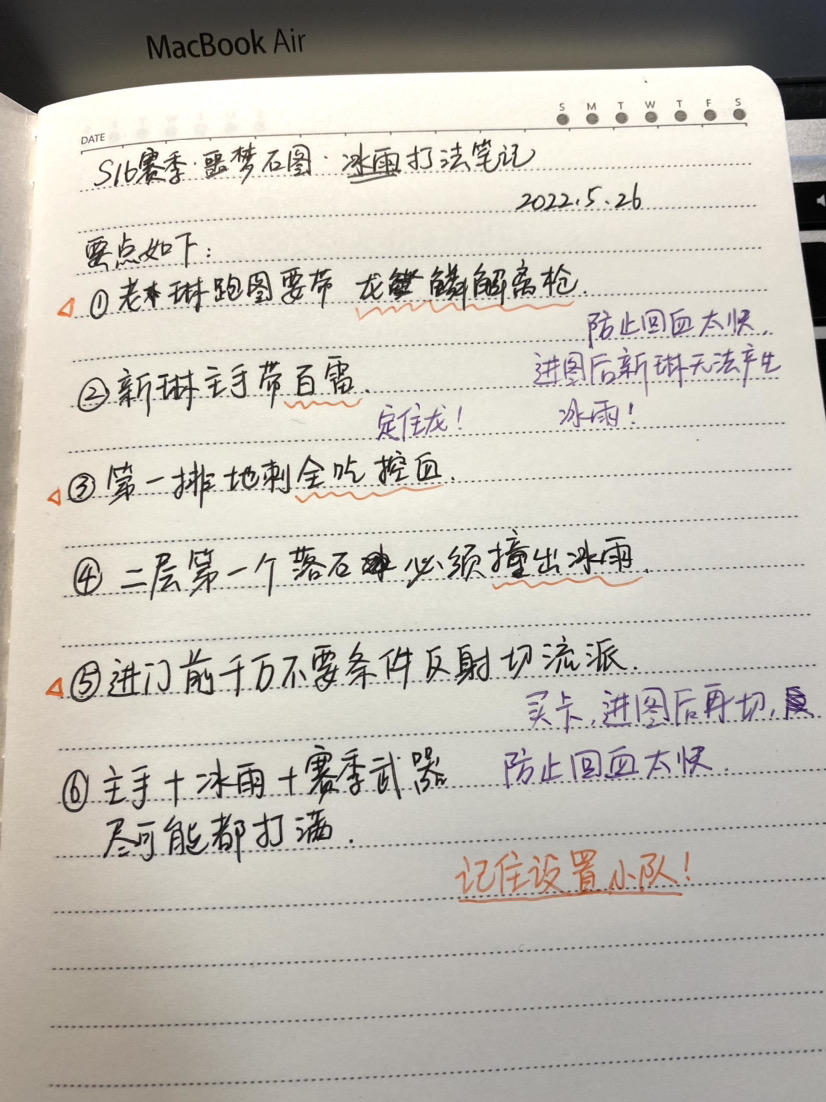 MacBook Air
S M T W T F S
DATE
S16赛季·噩梦石图·冰雨打法笔记
2022.5.26
要点如下：
①老琳跑图要带 龙鳞解离枪.
防止回血太快,
进图后新琳无法产生
冰雨!
②新琳主手带百雷.
定住龙!
③第一排地刺全吃控血.
④二层第一个落石必须撞出冰雨.
⑤进门前千万不要条件反射切流派.
买卡,进图后再切,
防止回血太快.
⑥主手+冰雨+赛季武器
尽可能都打满.
记住设置小队!